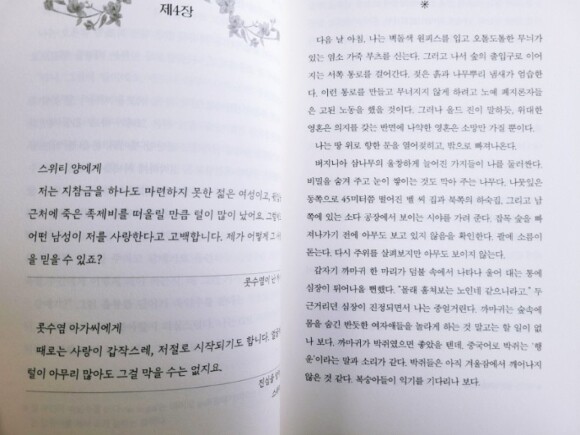 제4장
스위티 양에게
저는 지참금을 하나도 마련하지 못한 젊은 여성이고,
근처에 죽은 족제비를 떠올릴 만큼 털이 많이 났어요.
어떤 남성이 저를 사랑한다고 고백합니다. 제가 어떻게 그
을 믿을 수 있죠?
콧수염이 난
콧수염 아가씨에게
때로는 사랑이 갑작스레, 저절로 시작되기도 합니다.
털이 아무리 많아도 그걸 막을 수는 없지요.
다음 날 아침, 나는 벽돌색 원피스를 입고 오톨도톨한 무늬가
있는 염소 가죽 부츠를 신는다. 그리고 나서 숲의 출입구로 이어
지는 서쪽 통로를 걸어간다. 젖은 흙과 나무뿌리 냄새가 엄습한
다. 이런 통로를 만들고 무너지지 않게 하려고 노예 폐지론자들
은 고된 노동을 했을 것이다. 그러나 올드 진이 말하듯, 위대한
영혼은 의지를 갖는 반면에 나약한 영혼은 소망만 가질 뿐이다.
나는 땅 위로 향한 문을 열어젖히고, 밖으로 빠져나온다.
버지니아 삼나무의 울창하게 늘어진 가지들이 나를 둘러싼다.
비밀을 숨겨 주고 눈이 쌓이는 것도 막아 주는 나무다. 나뭇잎은
동쪽으로 45미터쯤 떨어진 벨 씨 집과 북쪽의 하숙집, 그리고 남
쪽에 있는 소다 공장에서 보이는 시야를 가려 준다. 잡목 숲을 빠
져나가기 전에 아무도 보고 있지 않음을 확인한다. 팔에 소름이
돋는다. 다시 주위를 살펴보지만 아무도 보이지 않는다.
갑자기 까마귀 한 마리가 덤불 속에서 나타나 울어 대는 통에
심장이 튀어나올 뻔했다. “몰래 훔쳐보는 노인네 같으니라고.” 두
근거리던 심장이 진정되면서 나는 중얼거린다. 까마귀는 숲속에
몸을 숨긴 반듯한 여자애들을 놀라게 하는 것 말고는 할 일이 없
나 보다. 까마귀가 박쥐였으면 좋았을 텐데, 중국어로 박쥐는 ‘행
운’이라는 말과 소리가 같다. 박쥐들은 아직 겨울잠에서 깨어나지
않은 것 같다. 복숭아들이 익기를 기다리나 보다.